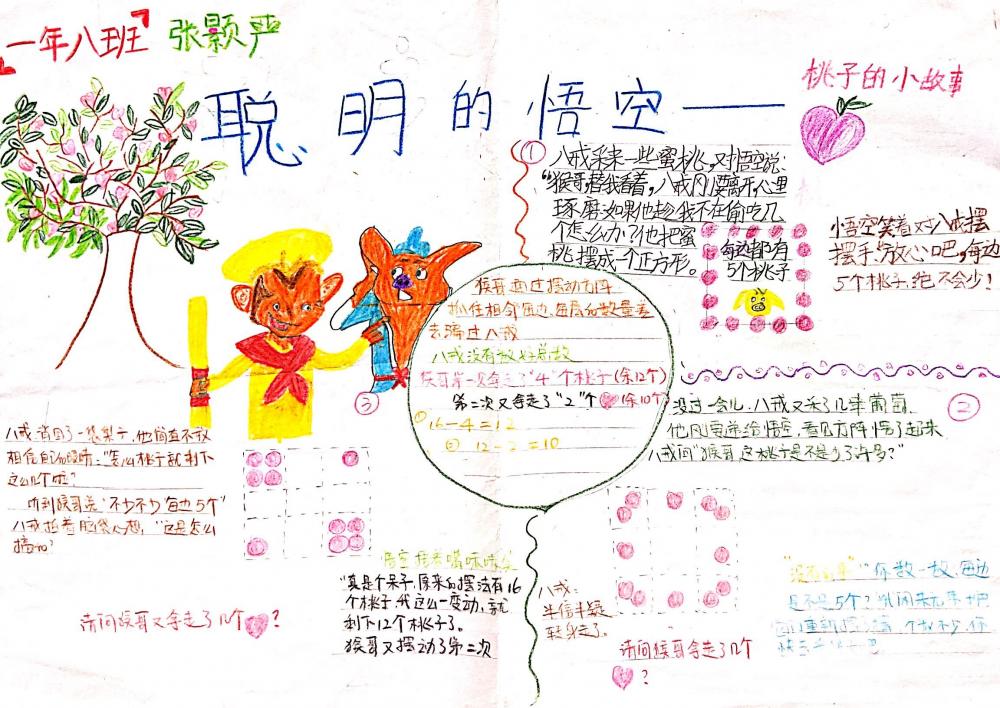 一年八班 张颢严
聪明的悟空——
桃子的小故事
① 八戒采来一些蜜桃,对悟空说:
“猴哥,替我看着,八戒刚要离开,心里
琢磨:如果他趁我不在偷吃几
个怎么办?他把蜜
桃摆成一个正方形。
每边都有
5个桃子
悟空笑着对八戒摆
摆手,放心吧,每边
5个桃子,绝不会少!
②
没过一会儿,八戒又采了几串葡萄,
他刚要递给悟空,看见方阵愣了起来
八戒问“猴哥这桃子是不是少了许多?”
“你数一数,每边
是不是5个?
八戒:
半信半疑
转身走了。
请问猴哥拿走了几个
?
③
八戒消回了一些梨子,他简直不敢
相信自己的眼睛:“怎么桃子就剩下
这么几个啦?
听到猴哥说“不少不少每边5个”
八戒拍着脑袋心想,“这是怎么
搞的?
请问猴哥又拿走了几个
?
悟空捂着嘴咪咪笑
“真是个呆子,原来的摆法有16
个桃子,我这么一变动,就
剩下12个桃子了。
猴哥又摆动了第二次
猴哥通过摆动方阵
抓住相邻两边,每层的数量差
去骗过八戒
八戒没有
猴哥第一次拿走了“4”个桃子(余12个)
第二次又拿走了“2”个(余10个)
①16-4=12
②12-2=10